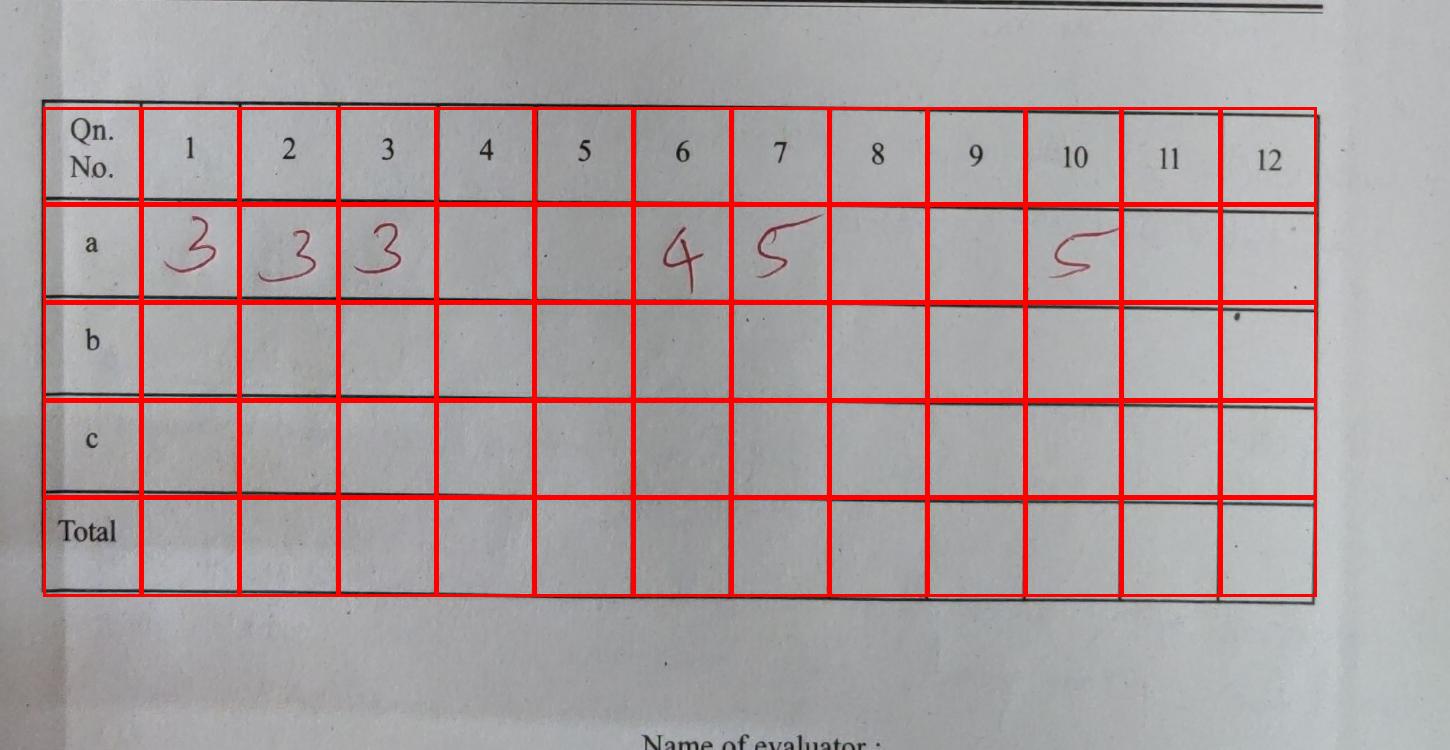 Qn. No. 1 2 3 4 5 6 7 8 9 10 11 12
a 3 3 3 4 5 5
b
c
Total
Name of evaluator :